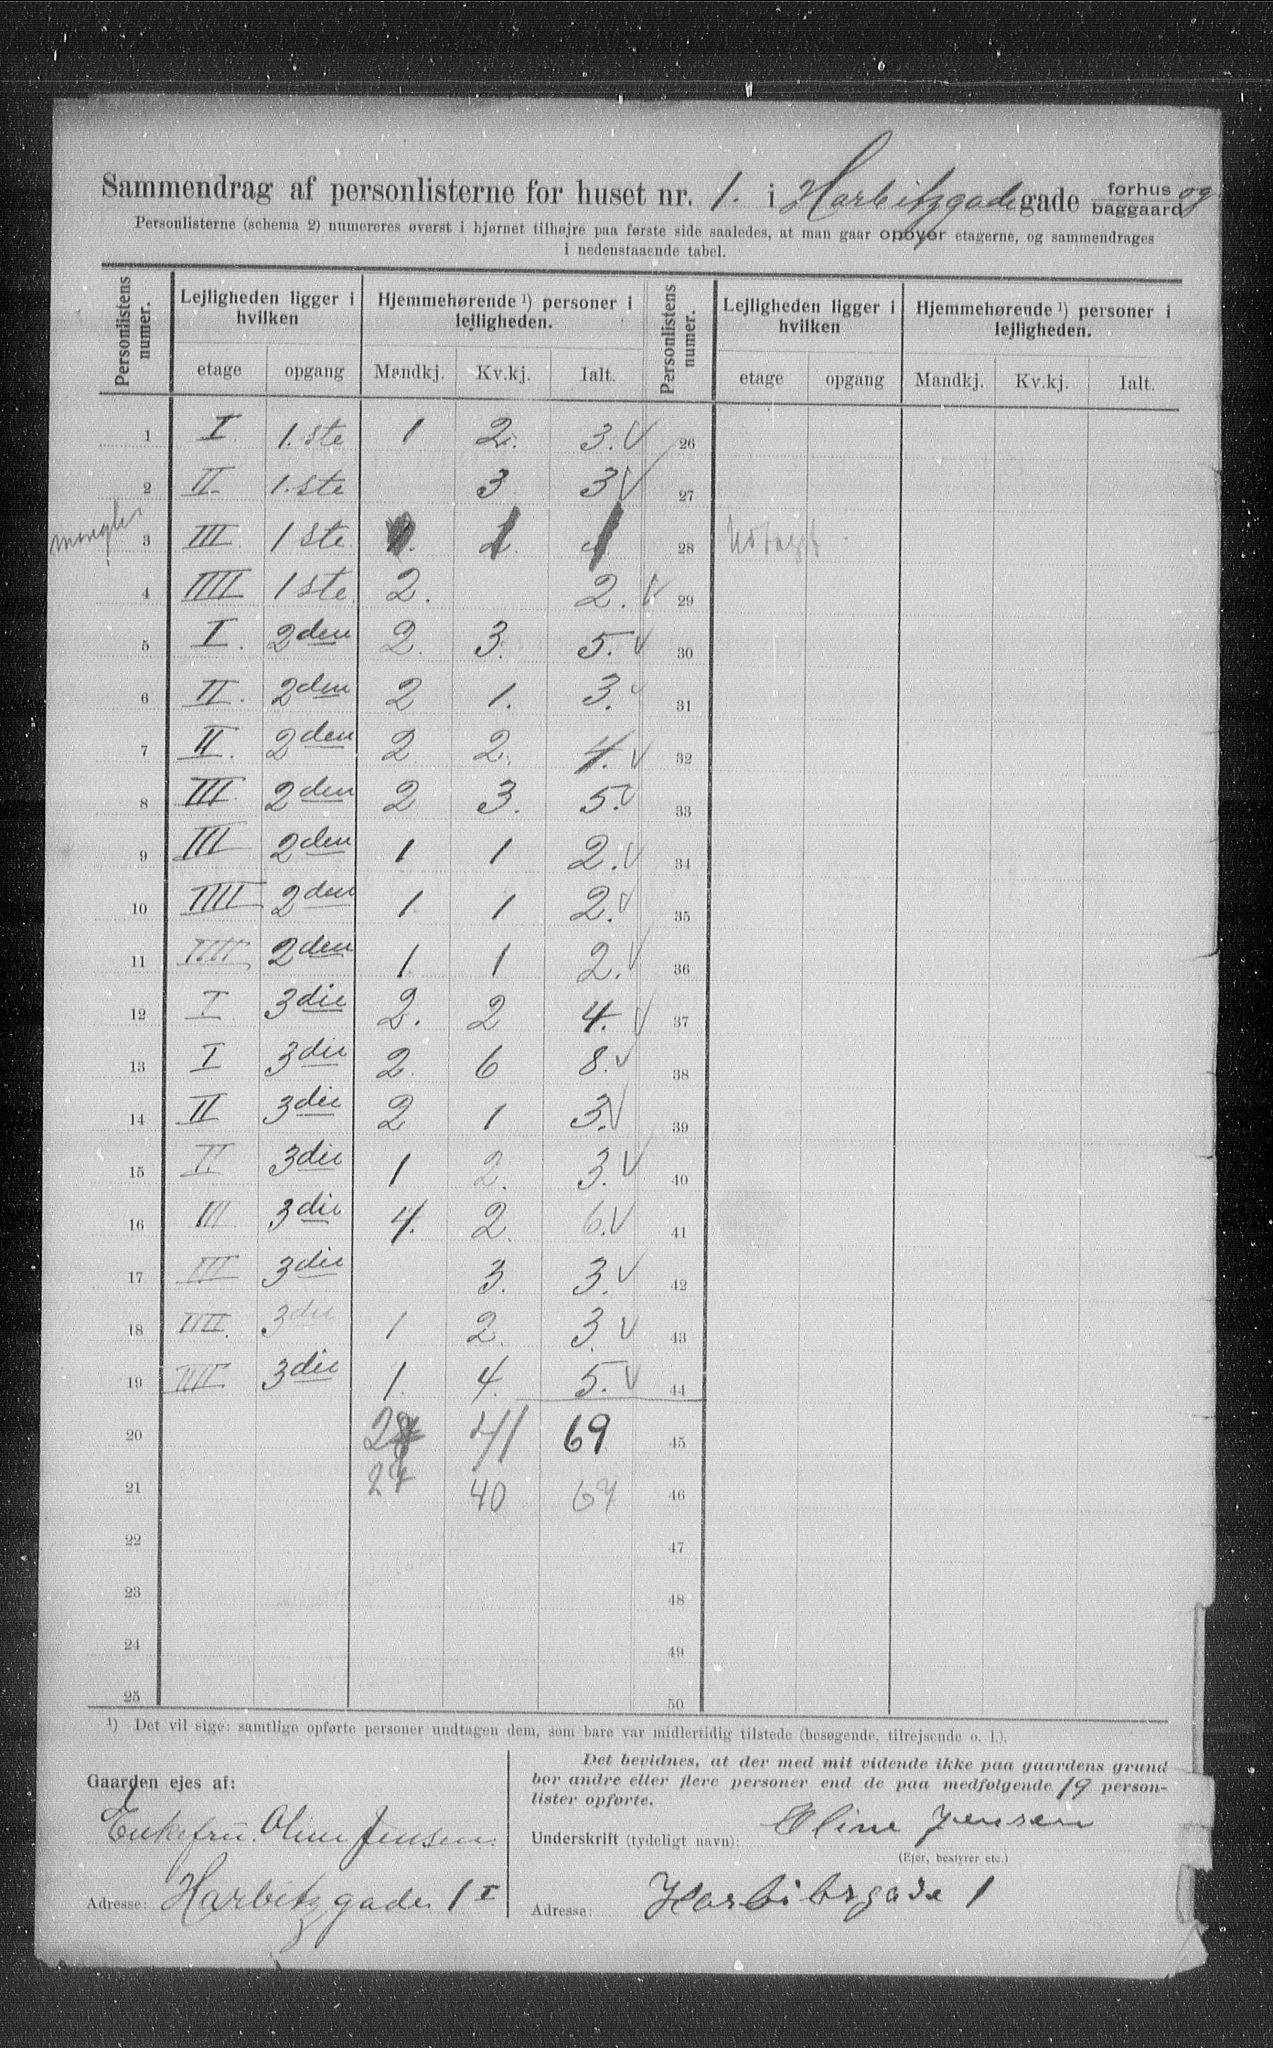 Sammendrag af personlisterne for huset nr. 1. i Harbitzgade gade forhus og baggaard
Personlisterne (schema 2) numereres øverst i hjørnet tilhøjre paa første side saaledes, at man gaar opover etagerne, og sammendrages
i nedenstaaende tabel.
Personlistens numer. Lejligheden ligger i hvilken Hjemmehørende ¹) personer i lejligheden. Personlistens numer. Lejligheden ligger i hvilken Hjemmehørende ¹) personer i lejligheden.
etage opgang Mandkj. Kv.kj. Ialt. etage opgang Mandkj. Kv.kj. Ialt.
1 I 1.ste 1 2. 3. V 26
2 II. 1.ste 3 3 V 27
mangler 3 III 1 ste 28
4 IIII 1 ste 2. 2. V 29
5 I. 2den 2. 3. 5. V 30
6 II. 2den 2 1. 3. V 31
7 II. 2den 2 2. 4. V 32
8 III 2den 2 3. 5. V 33
9 III 2den 1 1 2. V 34
10 IIII 2den 1 1 2. V 35
11 IIII 2den 1 1 2. V 36
12 I 3die 2. 2 4. V 37
13 I 3die 2. 6 8. V 38
14 II 3die 2 1 3. V 39
15 II 3die 1 2. 3. V 40
16 III 3die 4. 2. 6. V 41
17 III 3die 3. 3. V 42
18 IIII. 3die 1 2. 3. V 43
19 IIII 3die 1. 4. 5. V 44
20 41 69 45
21 27 40 67 46
22 47
23 48
24 49
25 50
¹) Det vil sige: samtlige opførte personer undtagen dem, som bare var midlertidig tilstede (besøgende, tilrejsende o. l.).
Gaarden ejes af:
Enkefru. Oline Jensen.
Adresse: Harbitzgade 1 I
Det bevidnes, at der med mit vidende ikke paa gaardens grund
bor andre eller flere personer end de paa medfølgende 19 person-
lister opførte.
Underskrift (tydeligt navn): Oline Jensen
(Ejer, bestyrer etc.)
Adresse: Harbitzgade 1